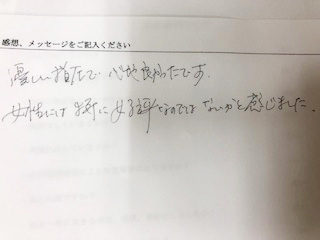 感想、メッセージをご記入ください
優しい指圧で心地良かったです。
女性には特に好評なのではないかと感じました。